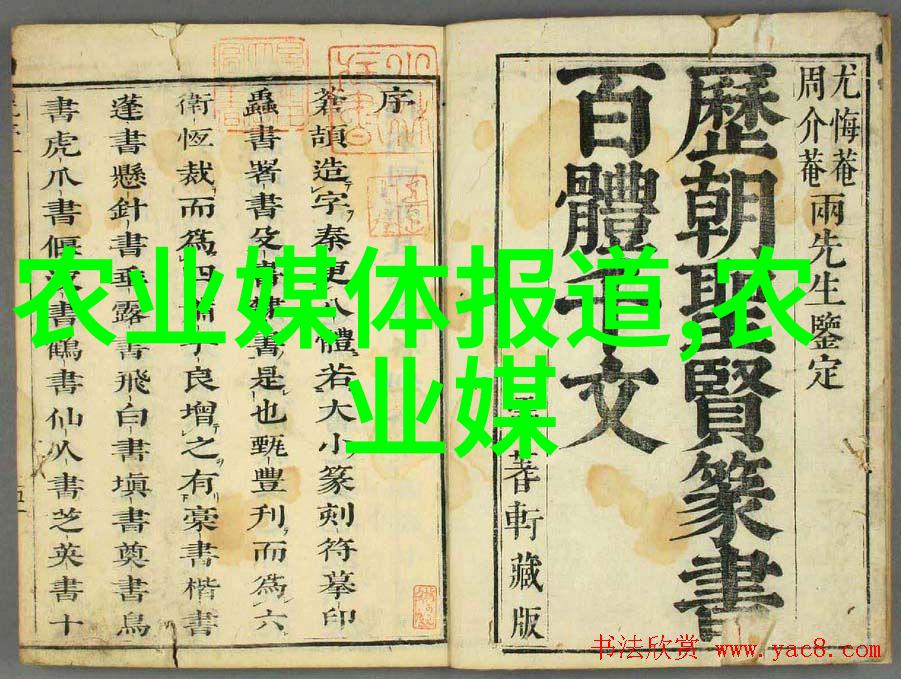 农业媒体报道,农
业媒
尤悔菴
周介菴
兩先生鑒定
歷朝聖賢篆書
百體千文
蓍軒藏版
序
蒼頡造字秦更八體若大小篆刻符摹印
蟲書署書殳書隸書是也甄豐刋而爲六
衛恆裁而爲四蕭子良增之有藁書楷書
蓬書懸針書垂露書飛白書塡書奠書鳥
書虎爪書偃波書鶴書仙人書芝英書十
书法欣赏 www.yac8.com